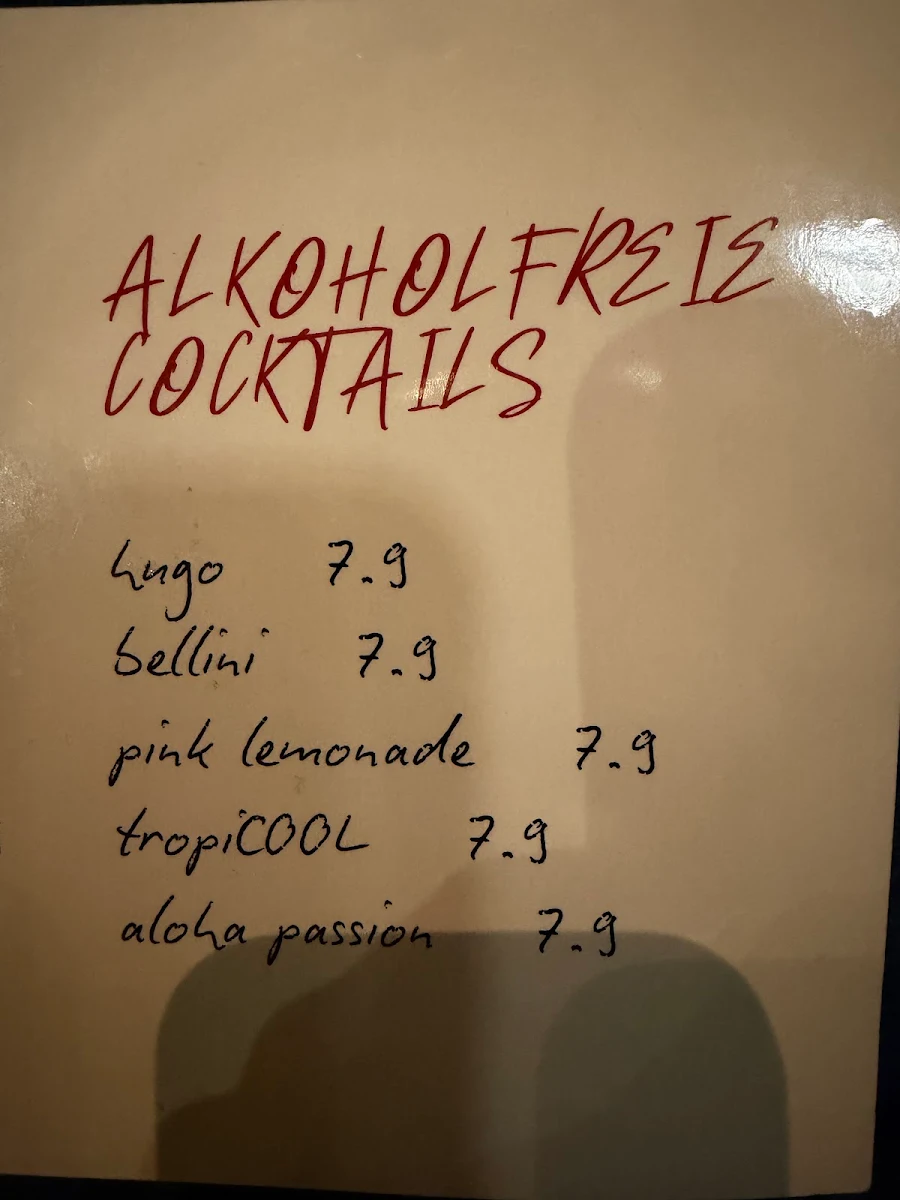 ALKOHOLFREIE
COCKTAILS
hugo 7.9
bellini 7.9
pink lemonade 7.9
tropiCOOL 7.9
aloha passion 7.9